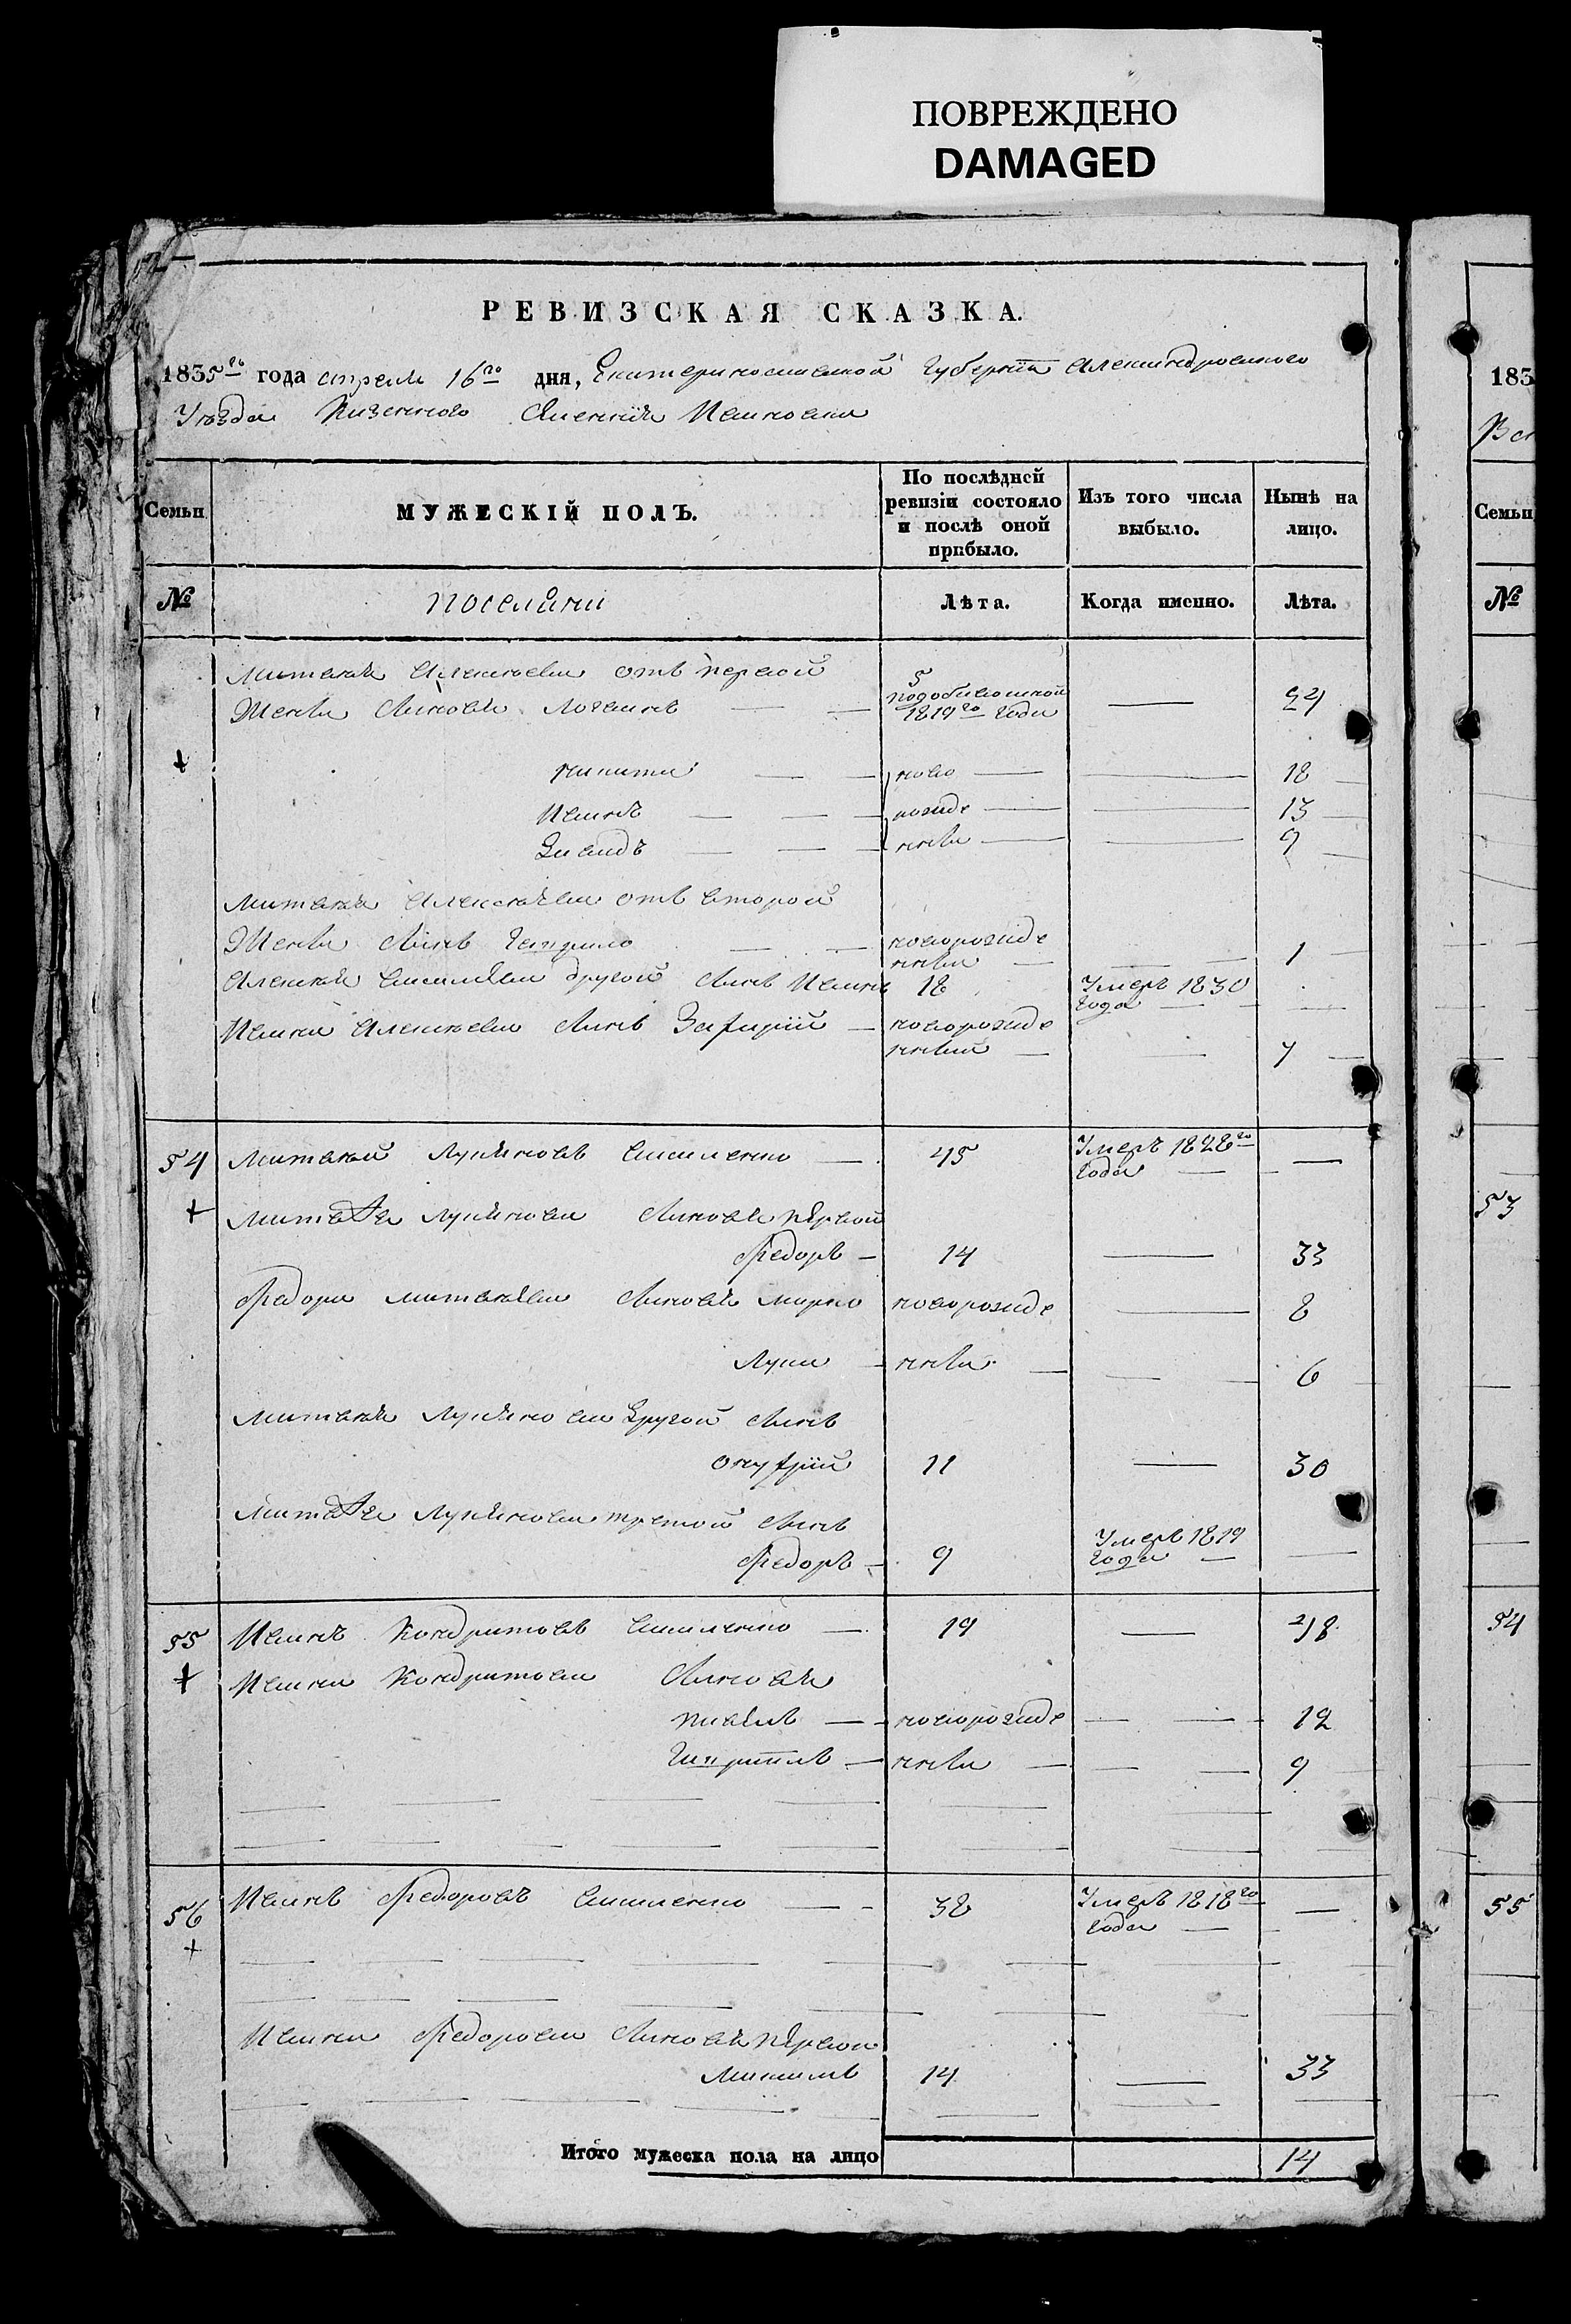 ПОВРЕЖДЕНО
DAMAGED
РЕВИЗСКАЯ СКАЗКА.
1835го года апреля 16го дня, Екатеринославской Губернiи Александровского
Уезда Казенного Селенiя Ивановки
Семьи
МУЖЕСКIЙ ПОЛЪ.
По послѣдней ревизiи состояло и послѣ оной прибыло.
Изъ того числа выбыло.
Нынѣ на лицо.
№ поселяни Лѣта. Когда именно. Лѣта.
Матвея Алексеева отъ первой 5
Жены Синовя Логвинъ — — подобивошной 1819го года — 24
никита — — ново — — 18
Иванъ — — — рожде — — 13
Давидъ — — — нны — — 9
Матвея Алексеева отъ второй
Жены Синъ Гаврило — — новорожде
нны — — 1
Алексея Василева другой Синъ Иванъ 18 Умеръ 1830
года — —
Ивана Алексеева Синъ Захарiй — новорожде
нный — — 7
54 Матвей Лукяновъ Василенко — 45 Умеръ 1828го
года — —
Матвея Лукянова Синовя первой
Федоръ — 14 — 33
Федора Матвеева Синовя марко новорожде — 8
Лука — нны — — 6
Матвея Лукянова Другой Синъ
Онуфрiй 11 — 30
Матвея Лукянова третой Синъ
Федоръ — 9 Умеръ 1819
года — —
55 Иванъ Кондратовъ Василенко — 19 — 38
Ивана Кондратова Синовя
Павелъ — новорожде — — 12
Гаврiилъ — нны — — — 9
56 Иванъ Федоровъ Василенко — 38 Умеръ 1818го
года — —
Ивана Федорова Синовя первой
Максимъ 14 — 33
Итого мужеска пола на лицо 14
183
Семьи
№
53
54
55